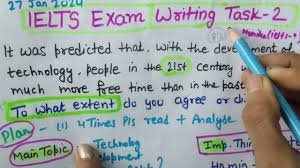 27 Jan 2024
IELTS Exam Writing Task-2
It was predicted that, with the development of
technology, people in the 21st century w
much more free time than in the past
To what extent do you agree or di
Plan - (1) 4 Times Pls read + Analyse
Main Topic
Technolog
elopment
Imp. Thin